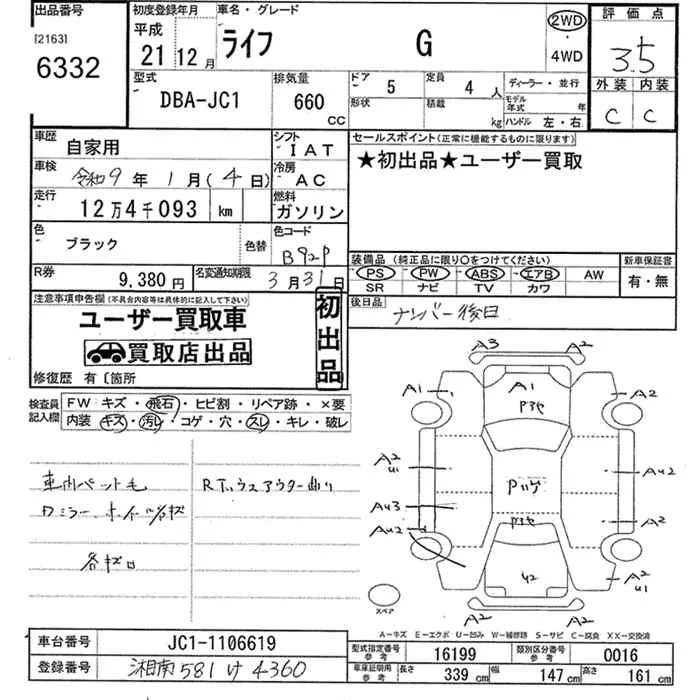 出品番号 初度登録年月 車名・グレード 評価点
[2163] 平成 ライフ G 2WD 3.5
6332 21年 12月 ・4WD
型式 排気量 ドア 5 定員 4人 ディーラー・並行 外装 内装
DBA-JC1 660 CC 形状 積載 kg モデル年式 年 ハンドル 左・右 C C
車歴 自家用 シフト IAT セールスポイント(正常に機能するものに限ります)
車検 令和9年 1月(4日) 冷房 AC ★初出品★ユーザー買取
走行 12万4千093 km 燃料 ガソリン
色 ブラック 色替 色コード B92P
装備品(純正品に限り○をつけてください) 新車保証書
R券 9,380円 名変通知期限 3月31日 PS ・ PW ・ ABS ・ エアB ・ AW 有・無
SR ナビ TV カワ
注意事項申告欄(不具合内容等は具体的に記入して下さい) 後日品 ナンバー後日
ユーザー買取車 初出品
買取店出品
修復歴 有〔箇所
検査員記入欄 FW キズ・飛石・ヒビ割・リペア跡・×要
内装 キズ・汚レ・コゲ・穴・スレ・キレ・破レ
A3 A2
A1 A1 A2
A2 U1 AU2
車内ペット毛 RTハウスアウター曲り
AU3 A2
AU2
各キズ凹 U2 A2 U1
スペア A2 A2
A-キズ E-エクボ U-凹み W-補修跡 S-サビ C-腐食 XX-交換済
車台番号 JC1-1106619 型式指定番号 参考 16199 類別区分番号 参考 0016
登録番号 湘南 581 け 4360 車庫証明用 参考 長さ 339 cm 幅 147 cm 高さ 161 cm